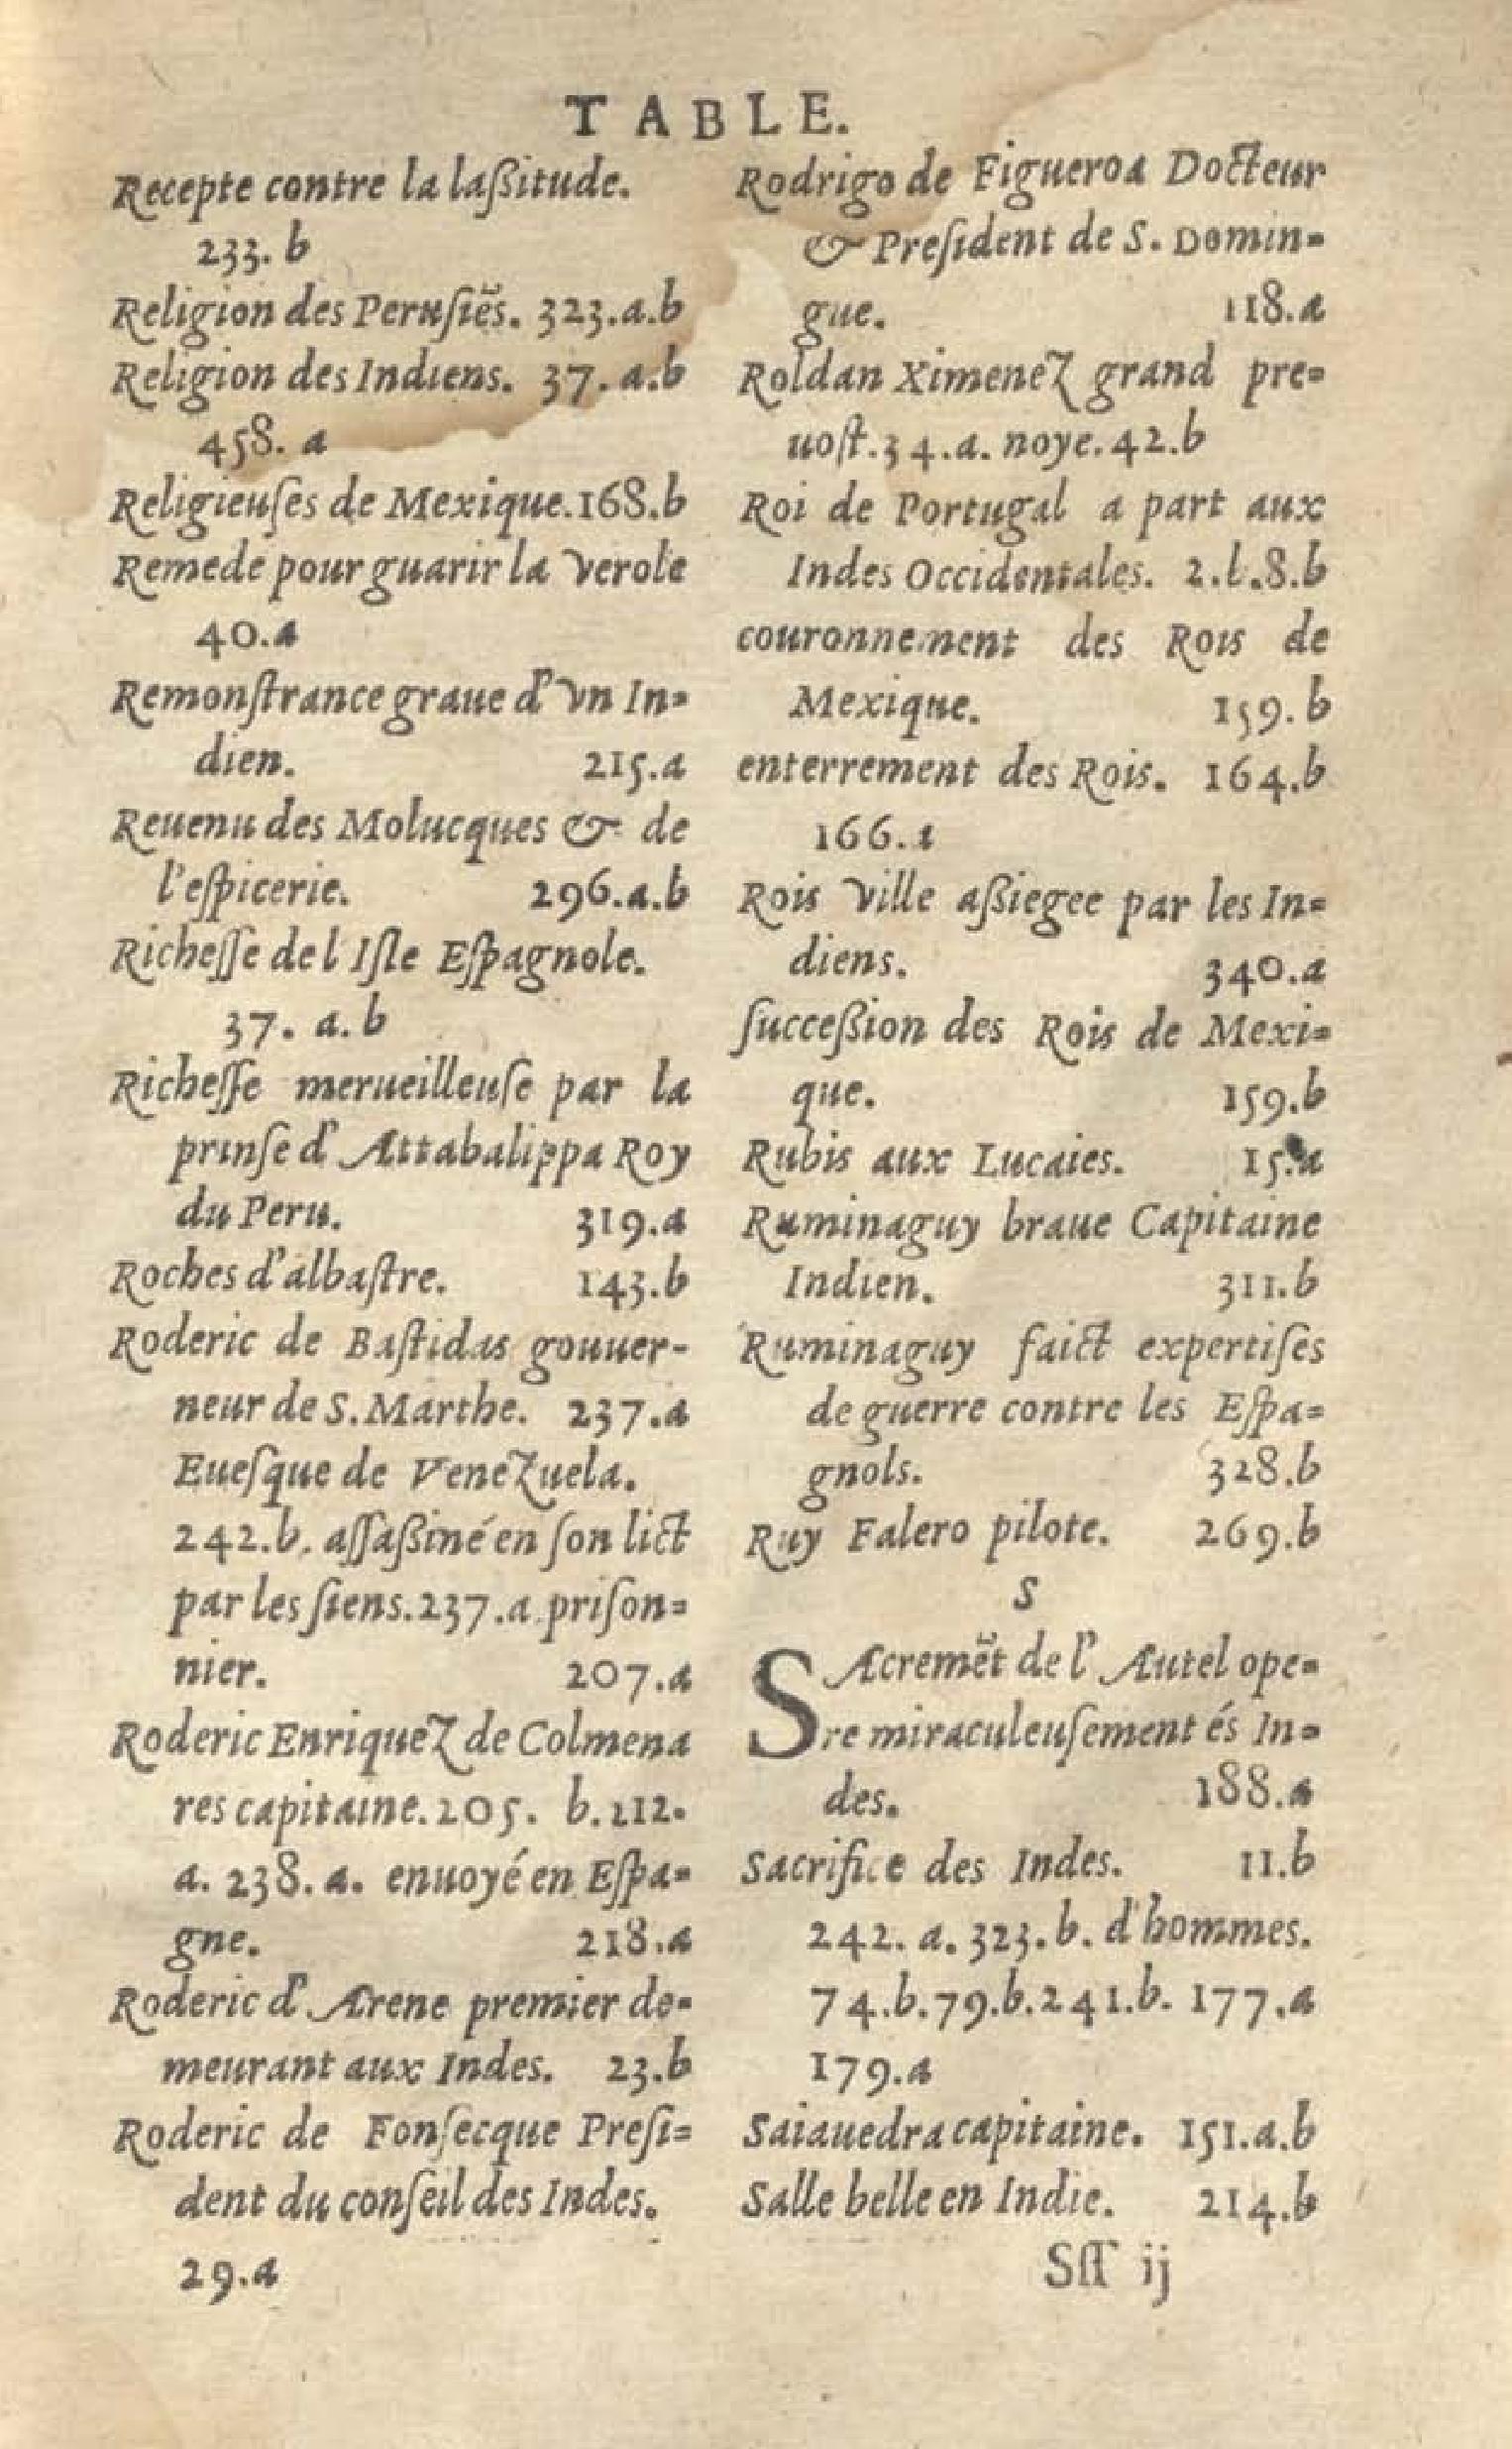 TABLE.
Recepte contre la laßitude.
233. b
Religion des Peruſiẽs. 323.a.b
Religion des Indiens. 37.a.b
458. a
Religieuſes de Mexique.168.b
Remede pour guarir la verole
40.a
Remonſtrance graue d'vn In-
dien. 215.a
Reuenu des Molucques & de
l'eſpicerie. 296.a.b
Richeſſe de l Iſle Eſpagnole.
37. a.b
Richeſſe merueilleuſe par la
prinſe d'Attabalippa Roy
du Peru. 319.a
Roches d'albaſtre. 143.b
Roderic de Baſtidas gouuer-
neur de S.Marthe. 237.a
Eueſque de Venezuela.
242.b. aſſaßiné en ſon lict
par les ſiens.237.a.priſon-
nier. 207.a
Roderic Enriquez de Colmena
res capitaine.205. b.212.
a. 238. a. enuoyé en Eſpa-
gne. 218.a
Roderic d'Arene premier de-
meurant aux Indes. 23.b
Roderic de Fonſecque Preſi-
dent du conſeil des Indes.
29.a
Rodrigo de Figueroa Docteur
& Preſident de S. Domin-
gue. 118.a
Roldan Ximenez grand pre-
uoſt.34.a. noye.42.b
Roi de Portugal a part aux
Indes Occidentales. 2.b.8.b
couronnement des Rois de
Mexique. 159.b
enterrement des Rois. 164.b
166.a
Rois ville aßiegee par les In-
diens. 340.a
ſucceßion des Rois de Mexi-
que. 159.b
Rubis aux Lucaies. 15.a
Ruminaguy braue Capitaine
Indien. 311.b
Ruminaguy faict expertiſes
de guerre contre les Eſpa-
gnols. 328.b
Ruy Falero pilote. 269.b
S
SAcremẽt de l'Autel ope-
re miraculeuſement és In-
des. 188.a
Sacrifice des Indes. 11.b
242. a. 323.b. d'hommes.
74.b.79.b.241.b. 177.a
179.a
Saiauedra capitaine. 151.a.b
Salle belle en Indie. 214.b
Sſſ ij